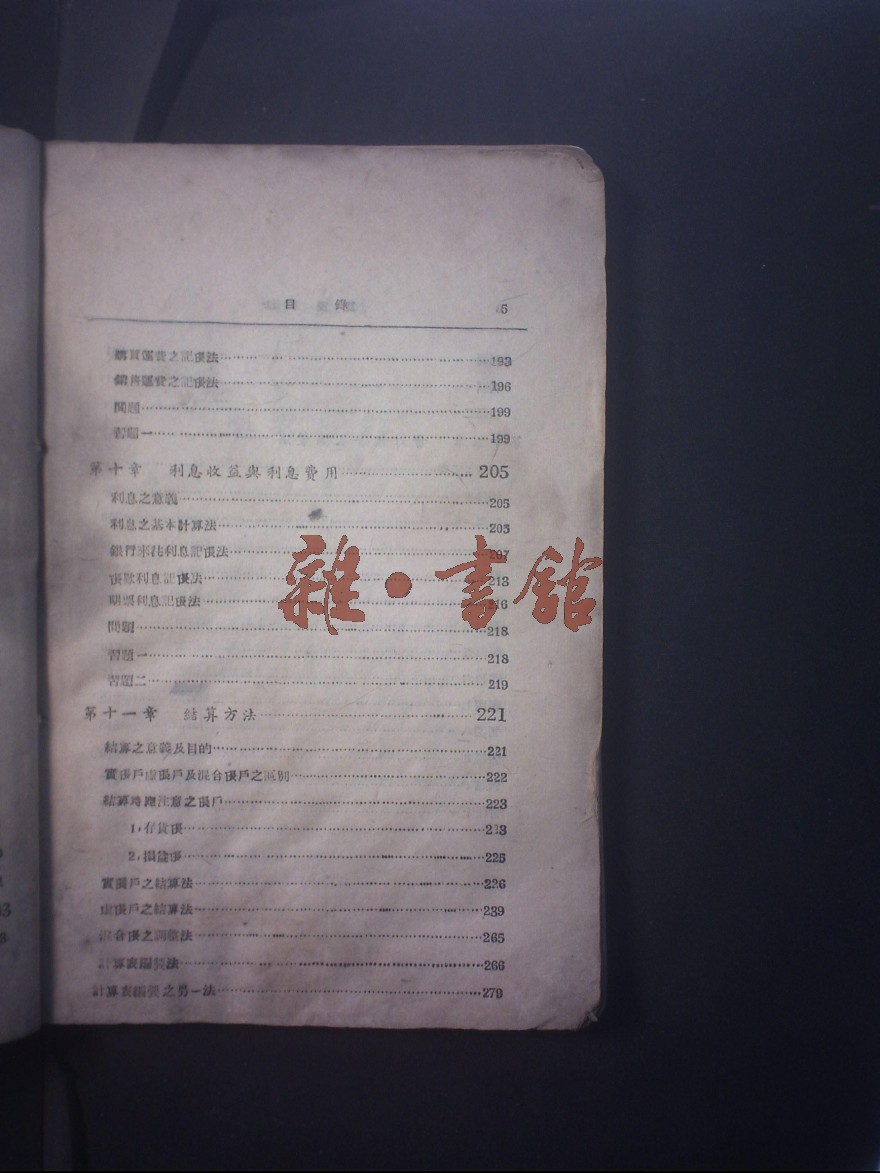 目錄 5
購買運費之記賬法 193
銷售運費之記賬法 196
問題 199
習題一 199
第十章 利息收益與利息費用 205
利息之意義 205
利息之基本計算法 205
銀行來往利息記賬法 207
賬款利息記賬法 213
期票利息記賬法 216
問題 218
習題一 218
習題二 219
第十一章 結算方法 221
結算之意義及目的 221
實賬戶虛賬戶及混合賬戶之區別 222
結算時應注意之賬戶 223
1,存貨賬 223
2,損益賬 225
實賬戶之結算法 226
虛賬戶之結算法 239
混合賬之調整法 265
計算表編製法 266
計算表編製之另一法 279
雜·書館